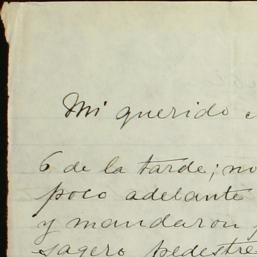 Mi querido
6 de la tarde; no
poco adelante
y mandaron
sagero pedestre